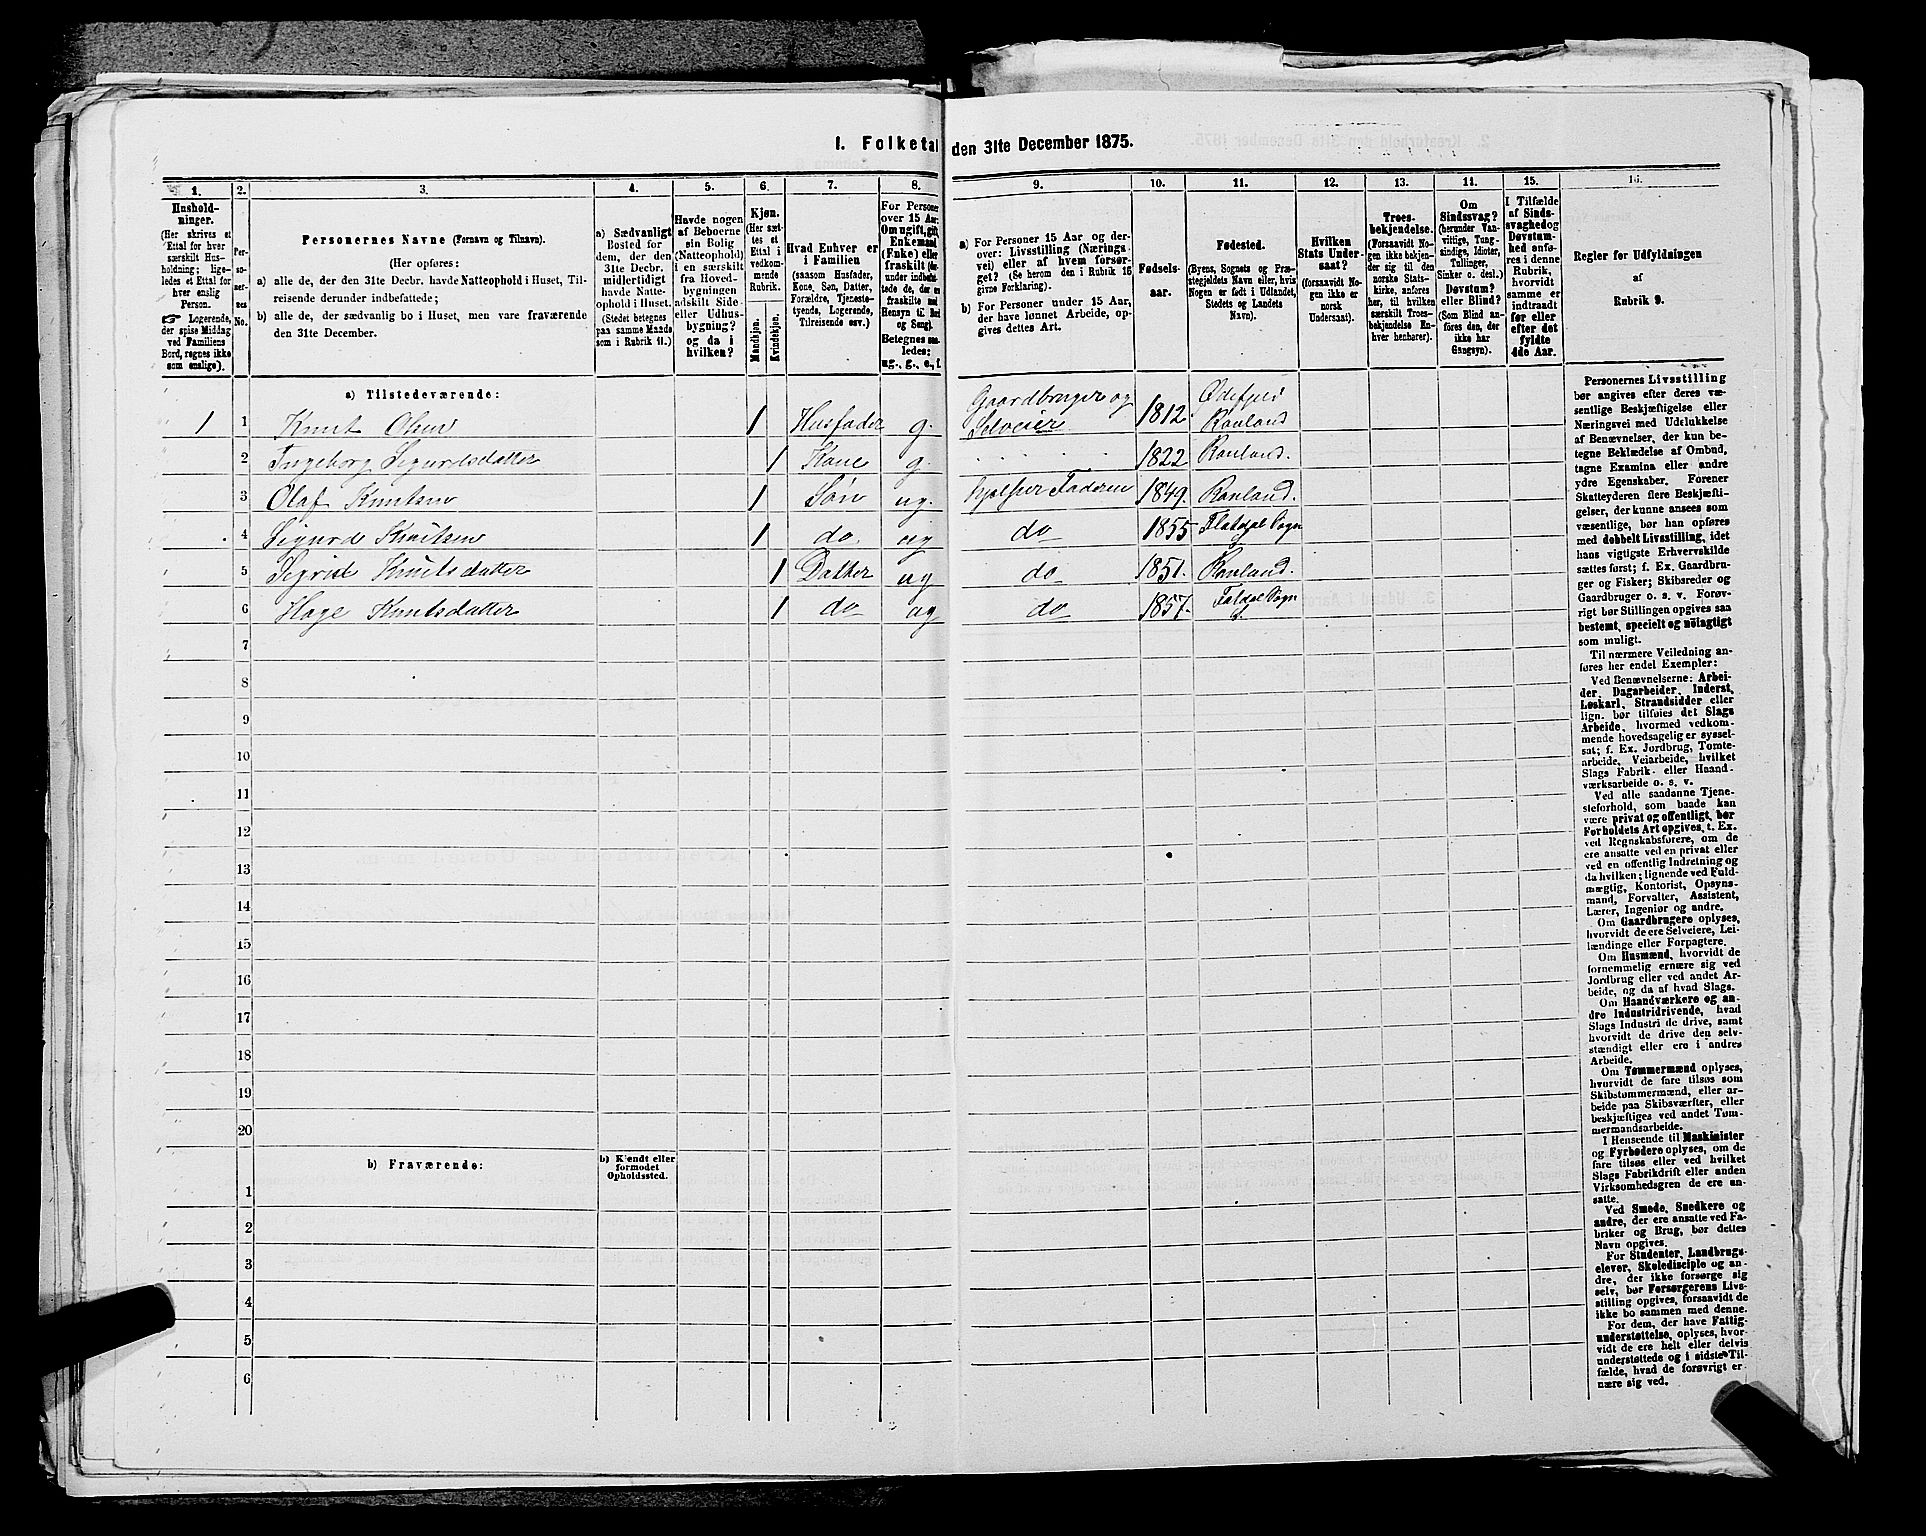 1. Folketal den 31te December 1875.
1. 2. 3. 4. 5. 6. 7. 8. 9. 10. 11. 12. 13. 14. 15. 16.
Hushold-
ninger.
(Her skrives et
Ettal for hver
særskilt Hus-
holdning; lige-
ledes et Ettal
for hver enslig
Person.
☞ Logerende,
der spise Middag
ved Familiens
Bord, regnes ikke
som enslige).
Per-
so-
ner-
nes
No.
Personernes Navne (Fornavn og Tilnavn).
(Her opføres:
a) alle de, der den 31te Decbr. havde Natteophold i Huset, Til-
reisende derunder indbefattede;
b) alle de, der sædvanlig bo i Huset, men vare fraværende
den 31te December.
a) Sædvanligt
Bosted for
dem, der den
31te Decbr.
midlertidigt
havde Natte-
ophold i Huset.
(Stedet betegnes
paa samme Maade
som i Rubrik 11.)
Havde nogen
af Beboerne
sin Bolig
(Natteophold)
i en særskilt
fra Hoved-
bygningen
adskilt Side-
eller Udhus-
bygning?
og da i
hvilken?
Kjøn.
(Her sæt-
tes et
Ettal i
vedkom-
mende
Rubrik.
Mandkjøn.
Kvindekjøn.
Hvad Enhver er
i Familien
(saasom Husfader,
Kone, Søn, Datter,
Forældre, Tjeneste-
tyende, Logerende,
Tilreisende osv.)
For Personer
over 15 Aar:
Om ugift, gift,
Enkemand
(Enke) eller
fraskilt
Betegnes saa-
ledes:
ug., g., e., f.
a) For Personer 15 Aar og der-
over: Livsstilling (Nærings-
vei) eller af hvem forsør-
get? (Se herom den i Rubrik 16
givne Forklaring).
b) For Personer under 15 Aar,
der have lønnet Arbeide, op-
gives dettes Art.
Fødsels-
aar.
Fødested.
(Byens, Sognets og Præ-
stegjeldets Navn eller, hvis
Nogen er født i Udlandet,
Stedets og Landets
Navn).
Hvilken
Stats Under-
saat?
(forsaavidt No-
gen ikke er
norsk
Undersaat).
Troes-
bekjendelse.
(Forsaavidt No-
gen ikke bekjen-
der sig til den
norske Stats-
kirke, anføres
her, til hvilken
særskilt Troes-
bekjendelse En-
hver henhører).
Om
Sindssvag?
(herunder Van-
vittige, Tung-
sindige, Idioter,
Tullinger,
Sinker o. desl.)
Døvstum?
eller Blind?
(Som Blind an-
føres den, der
ikke har
Gangsyn).
I Tilfælde
af Sinds-
svaghed og
Døvstum-
hed anfø-
res i denne
Rubrik,
hvorvidt
samme er
indtraadt
før eller
efter det
fyldte
4de Aar.
Regler for Udfyldningen
af
Rubrik 9.
a) Tilstedeværende:
1 1 Knut Olsen 1 Husfader g. Gaardbruger og Selveier 1812 Ødefjeld Rauland
2 Ingeborg Sigurdsdatter 1 Kone g. 1822 Rauland.
3 Olaf Knutsen 1 Søn ug. hjelper Faderen 1849. Rauland.
4 Sigurd Knutsen 1 do. ug do 1855 Flatdal Sogn
5 Sigrid Knutsdatter 1 Datter ug do 1851. Rauland.
6 Hage Knutsdatter 1 do ug do 1857. Fatdal Sogn
7
8
9
10
11
12
13
14
15
16
17
18
19
20
b) Fraværende:
b) Kjendt eller
formodet
Opholdssted.
1
2
3
4
5
6
Personernes Livsstilling
bør angives efter deres væ-
sentlige Beskjæftigelse eller
Næringsvei med Udelukkelse
af Benævnelser, der kun be-
tegne Beklædelse af Ombud,
tagne Examina eller andre
ydre Egenskaber. Forener
Skatteyderen flere Beskjæfti-
gelser, der kunne ansees som
væsentlige, bør han opføres
med dobbelt Livsstilling, idet
hans vigtigste Erhvervskilde
sættes først; f. Ex. Gaardbru-
ger og Fisker; Skibsreder og
Gaardbruger o. s. v. Forøv-
rigt bør Stillingen opgives saa
bestemt, specielt og nøiagtigt
som muligt.
Til nærmere Veiledning an-
føres her endel Exempler:
Ved Benævnelserne: Arbei-
der, Dagarbeider, Inderst,
Løskarl, Strandsidder eller
lign. bør tilføies det Slags
Arbeide, hvormed vedkom-
mende hovedsagelig er syssel-
sat; f. Ex. Jordbrug, Tomte-
arbeide, Veiarbeide, hvilket
Slags Fabrik- eller Haand-
værksarbeide o. s. v.
Ved alle saadanne Tjene-
steforhold, som baade kan
være privat og offentligt, bør
Forholdets Art opgives, t. Ex.
ved Regnskabsførere, om de
ere ansatte ved en privat eller
ved en offentlig Indretning og
da hvilken; lignende ved Fuld-
mægtig, Kontorist, Opsyns-
mand, Forvalter, Assistent,
Lærer, Ingeniør og andre.
Om Gaardbrugere oplyses,
hvorvidt de ere Selveiere, Lei-
lændinge eller Forpagtere.
Om Husmænd, hvorvidt de
fornemmelig ernære sig ved
Jordbrug eller ved andet Ar-
beide, og da af hvad Slags.
Om Haandværkere og an-
dre Industridrivende, hvad
Slags Industri de drive, samt
hvorvidt de drive den selv-
stændigt eller ere i andres
Arbeide.
Om Tømmermænd oplyses,
hvorvidt de fare tilsøs som
Skibstømmermænd, eller ar-
beide paa Skibsværfter, eller
beskjæftiges ved andet Tøm-
mermandsarbeide.
I Henseende til Maskinister
og Fyrbødere oplyses, om de
fare tilsøs eller ved hvilket
Slags Fabrikdrift eller anden
Virksomhedsgren de ere an-
satte.
Ved Smede, Snedkere og
andre, der ere ansatte ved Fa-
briker og Brug, bør dettes
Navn opgives.
For Studenter, Landbrugs-
elever, Skoledisciple og an-
dre, der ikke forsørge sig
selv, bør Forsørgerens Livs-
stilling opgives, forsaavidt de
ikke bo sammen med denne.
For dem, der have Fattig-
understøttelse, oplyses, hvor-
vidt de ere helt eller delvis
understøttede og i sidste Til-
fælde, hvad de forøvrigt er-
nære sig ved.